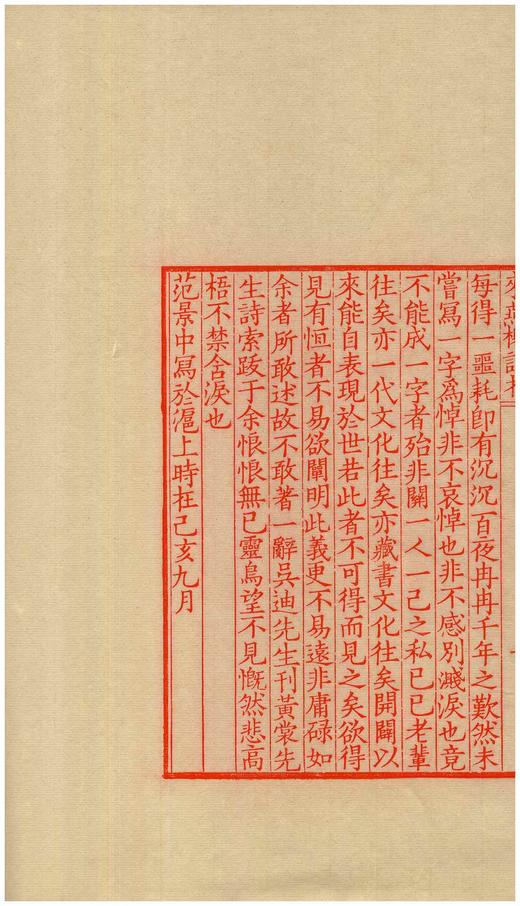 每得一噩耗卽有沉沉百夜冉冉千年之歎然未
嘗寫一字爲悼非不哀悼也非不感別濺淚也竟
不能成一字者殆非關一人一己之私已已老輩
往矣亦一代文化往矣亦藏書文化往矣開闢以
來能自表現於世若此者不可得而見之矣欲得
見有恒者不易欲闡明此義更不易遠非庸碌如
余者所敢述故不敢著一辭吳迪先生刊黃裳先
生詩索跋于余悵悵無已靈烏望不見慨然悲高
梧不禁含淚也
范景中寫於滬上時在己亥九月